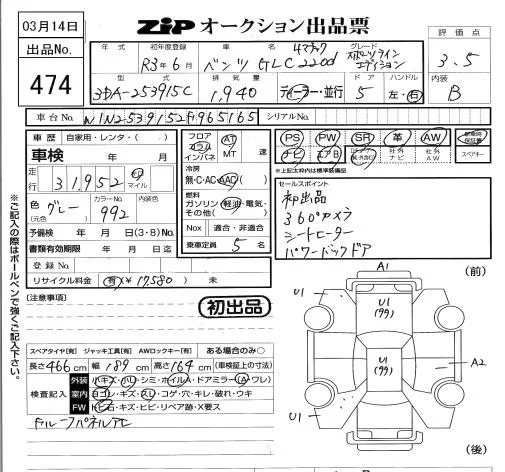 03月14日
ZIP オークション出品票
評価点
出品No.
474
年式
初年度登録
車名
グレード
R3年6月
ベンツ GLC220d
4マチック
スポーツライン
エディション
3.5
型式
排気量
ドア
ハンドル
内装
3DA-253915C
1,940
ディーラー・並行
5
左・右
B
車台No.
W1N2539152F965165
シリアルNo.
車歴
自家用・レンタ・( )
車検 年 月
走行
31,952
km
マイル
色
(元色)
グレー
カラーNo.
992
内装色
予備検 月 日(3・8)No.
書類有効期限 年 月 日迄
登録No.
リサイクル料金 (有)(¥17580) 未
フロア
コラム
インパネ
AT
MT
速
冷房
無・C・AC・AAC
燃料
ガソリン・軽油・電気・
その他( )
Nox 適合・非適合
乗車定員 5 名
PS
PW
SR
革
AW
ナビ
エアB
社外
ナビ
社外
AW
スペアキー
*上記太枠内は標準装備品
セールスポイント
初出品
360°カメラ
シートヒーター
パワーバックドア
※ご記入の際はボールペンで強くご記入下さい。
(注意事項)
初出品
スペアタイヤ[有] ジャッキ工具[有] AWロックキー[有] ある場合のみ○
長さ466cm 幅189cm 高さ164cm (車検証上の寸法)
検査記入
外装
小キズ・小凹・シミ・ホイルA・ドアミラー(A・ワレ)
室内
ヨゴレ・キズ・スレ・コゲ・穴・キレ・破れ・ウキ
FW
トビ石・キズ・ヒビ・リペア跡・X要ス
(前)
(後)
A1
U1
U1
(99)
U1
(99)
A2
U1